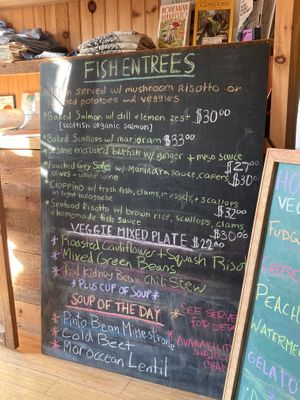 BOHEMIAN
MANIFESTO
FISH ENTREES
served w/ mushroom Risotto or
potatoes and veggies
*Baked Salmon w/ dill + lemon zest $30.00
[scottish organic salmon]
*Baked Scallops w/ marjoram $33.00
encrusted bluefish w/ ginger + miso sauce $27.00
*Poached Grey Sole w/ Marinara sauce, capers, $30.00
olives + white wine
*Cioppino w/ fresh fish, clams, mussels, + scallops
in light bolognese $32.00
*Seafood Risotto w/ brown rice, scallops, clams
+ homemade fish sauce $30.00
VEGGIE MIXED PLATE $22.00
*Roasted Cauliflower + Squash Risot
*Mixed Green Beans
*Red Kidney Bean Chili Stew
*PLUS CUP OF SOUP*
SOUP OF THE DAY
*Pinto Bean Minestrone
*Cold Beet
*Moroccan Lentil
*SEE SERVE
FOR DETA
*AVAILABILIT
SUBJECT
CHAN
HO
FUDG
CHEESE
PEACH
WATERMEL
GELATO